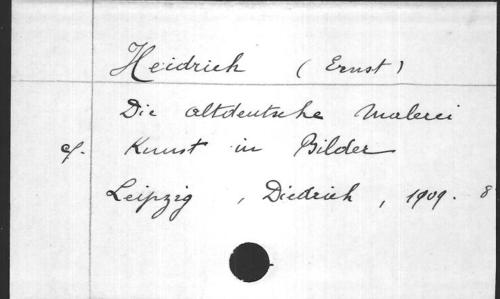 Heidrich (Ernst)
Die altdeutsche Malerei
cf. Kunst in Bilder
Leipzig, Diedrich, 1909. 8